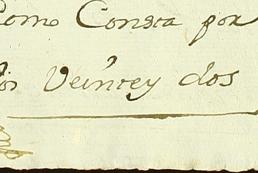 Como Consta por
Veintey dos